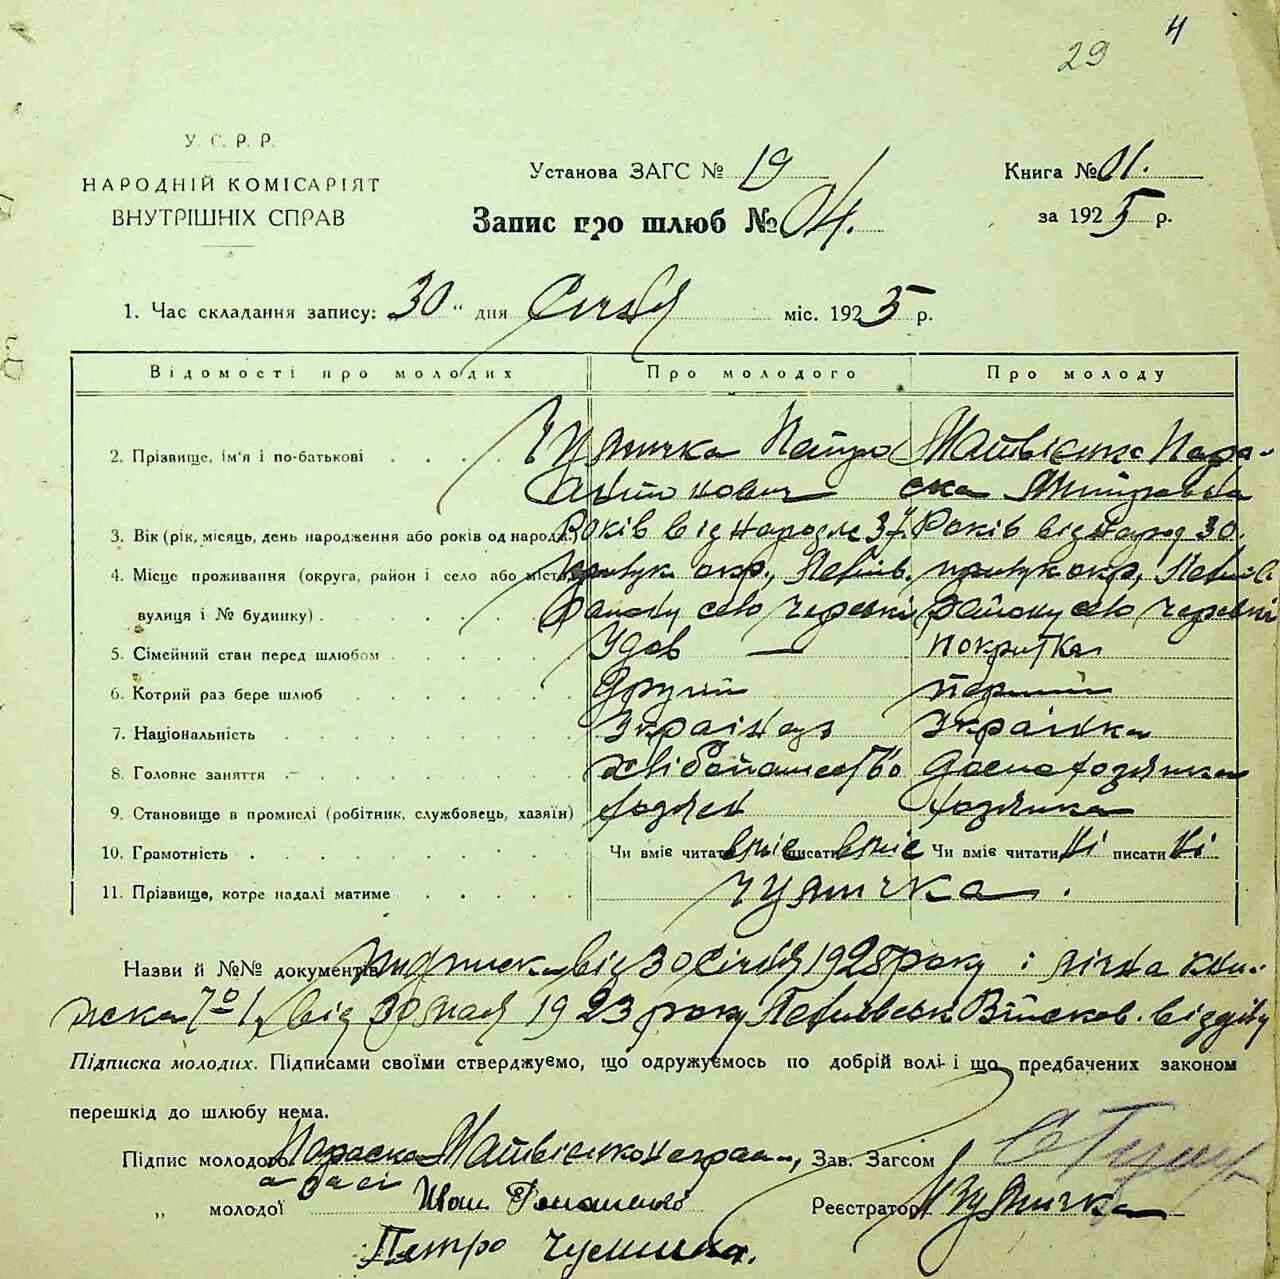 4
29
У. С. Р. Р.
НАРОДНІЙ КОМІСАРІЯТ
ВНУТРІШНІХ СПРАВ
Установа ЗАГС № 19
Книга № 01.
Запис про шлюб № 04.
за 1925 р.
1. Час складання запису: 30 " дня Січня міс. 1925 р.
Відомості про молодих Про молодого Про молоду
2. Прізвище, ім'я і по-батькові . . . . Петро Матвієнко Пара-
нович ска Дмитрівна
3. Вік (рік, місяць, день народження або років од народж.) Років від народж 37. Років від народ 30.
4. Місце проживання (округа, район і село або місто, прилук окр., прилук окр,
вулиця і № будинку) . . . . . району село району село
5. Сімейний стан перед шлюбом . . . . . Удов — покритка
6. Котрий раз бере шлюб . . . . . . Другий перший
7. Національність . . . . . . . . Українець Українка
8. Головне заняття . . . . . . . . хліборобство
9. Становище в промислі (робітник, службовець, хазяїн)
10. Грамотність . . . . . . . . . Чи вміє читати вміє писати вміє Чи вміє читати Ні писати Ні
11. Прізвище, котре надалі матиме . . . . .
Назви й №№ документів Підписка від 30 січня 1925 року і лічна кни-
жка № від 30 мая 1923 року Військов. відділу
Підписка молодих. Підписами своїми стверджуємо, що одружуємось по добрій волі і що предбачених законом
перешкід до шлюбу нема.
Підпис молодого Параска Матвієнко неграм., Зав. Загсом
а за неї
„ молодої Иван Реєстратор
Петро